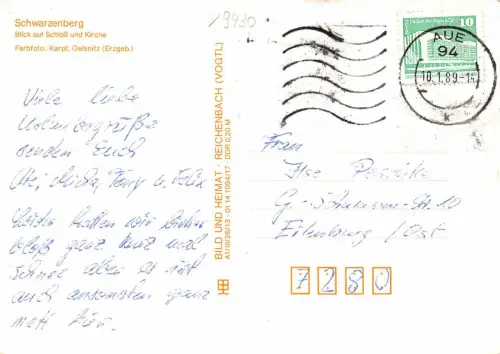 19430
Schwarzenberg
Blick auf Schloß und Kirche
Farbfoto: Karpf, Oelsnitz (Erzgeb.)
10
AUE
94
10.1.89-14
k
Viele liebe
Urlaubsgrüße
senden Euch
Ute,
u.
Leider hatten wir bisher
bloß ganz kurz mal
Schnee aber es ist
auch ansonsten ganz
nett hier.
BILD UND HEIMAT · REICHENBACH (VOGTL)
A1/B/26/13 · 01 14 1094/17 · DDR 0,20 M
Frau
Ilse
Eilenburg / Ost
7280